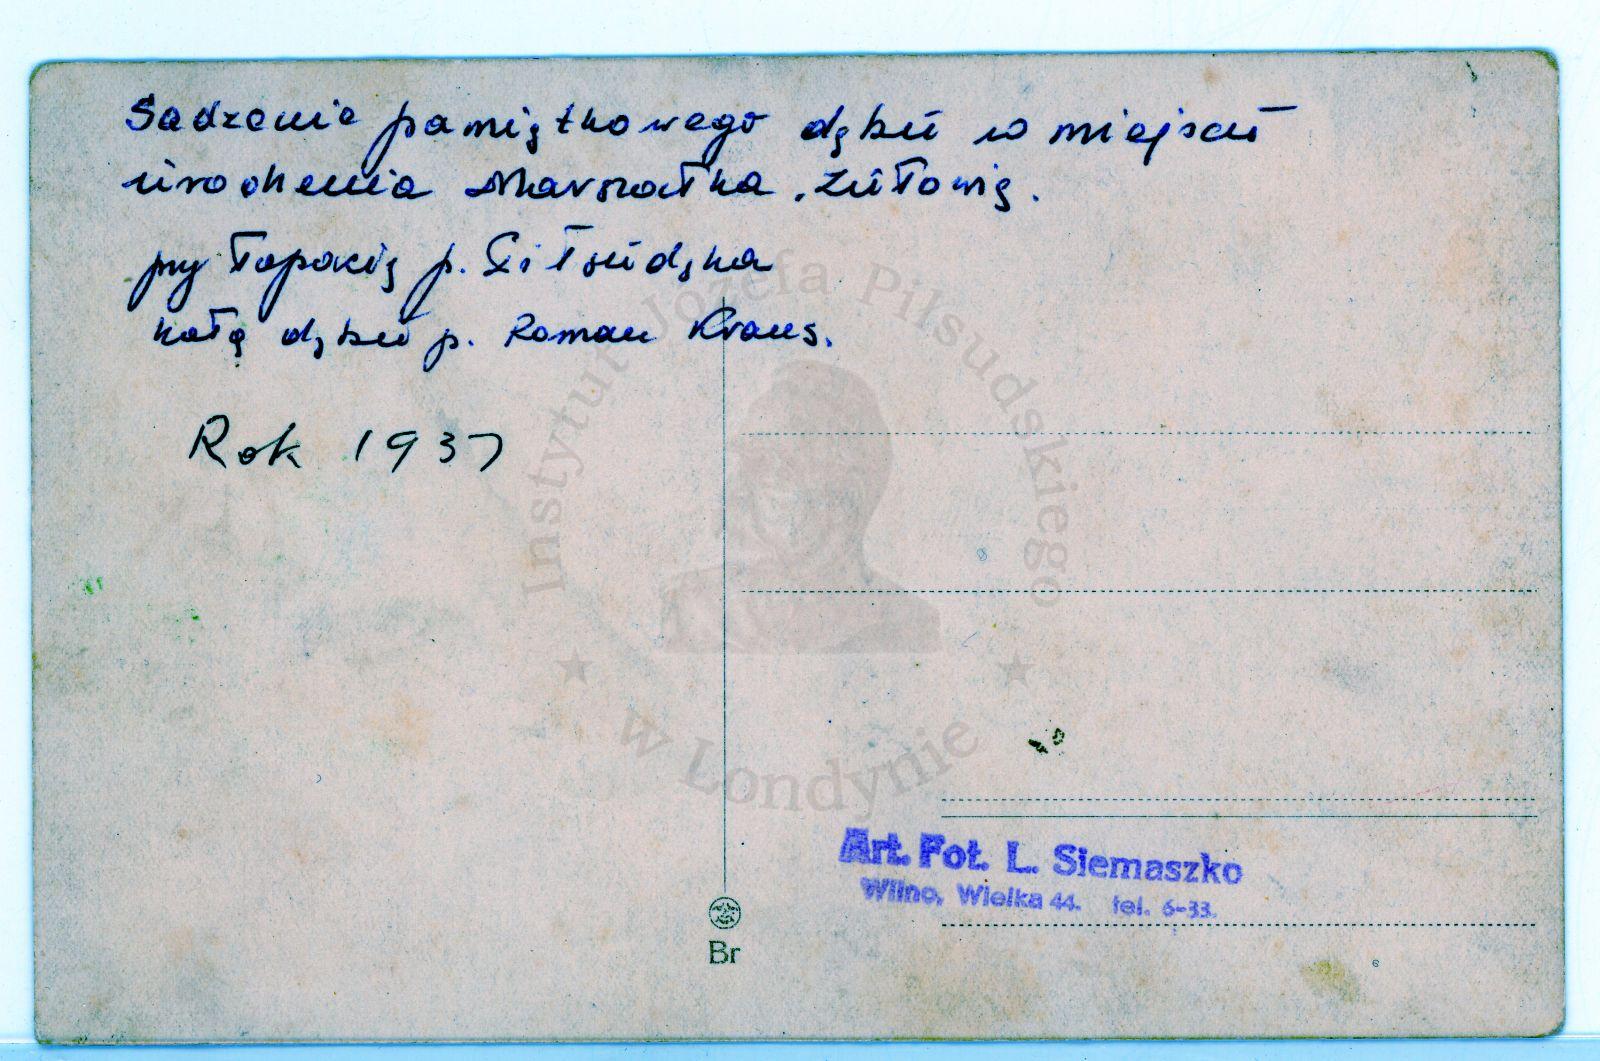 Sadzenie pamiątkowego dębu w miejscu
urodzenia Marszałka, Zułowie.
przy łopacie p. Piłsudska
koło dębu p. Roman Kraus.
Rok 1937
Instytut Józefa Piłsudskiego
w Londynie
Art. Fot. L. Siemaszko
Wilno, Wielka 44. tel. 6-33.
Br